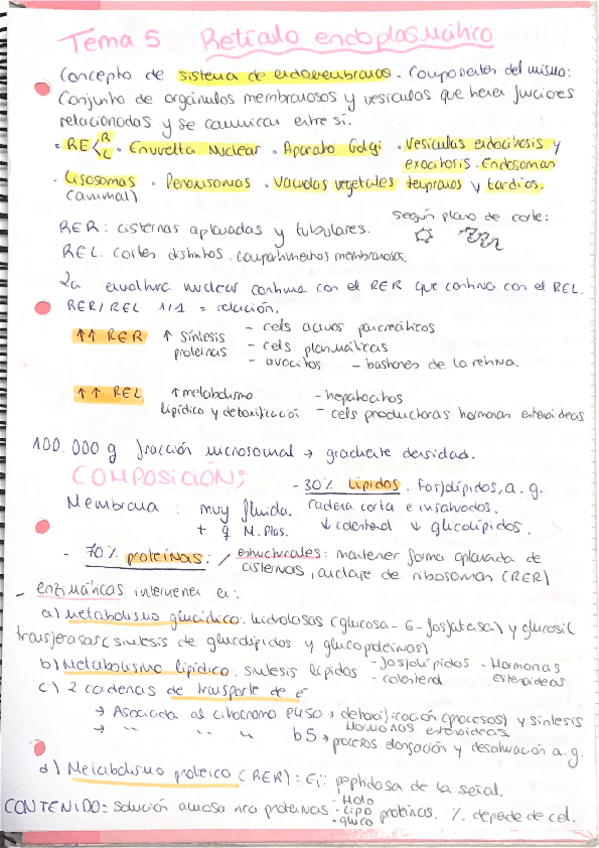 Tema 5 Retículo endoplasmático
Concepto de sistema de endomembranas. Componentes del mismo:
Conjunto de orgánulos membranosos y vesículas que tienen funciones
relacionadas y se comunican entre sí.
· RE < R L · Envuelta Nuclear · Aparato Golgi · Vesículas endocitosis y
exocitosis · Endosomas
· Lisosomas · Peroxisomas · Vacuolas vegetales tempranos y tardíos.
(animal)
RER: cisternas aplanadas y tubulares. según plano de corte:
REL: cortes distintos. compartimentos membranosos.
La envoltura nuclear continua con el RER que continua con el REL.
RER/REL 1/1 = relación.
↑↑ RER ↑ síntesis proteínas - cels acinos pancreáticos
- cels plasmáticas
- ovocitos - bastones de la retina.
↑↑ REL ↑ metabolismo - hepatocitos
lipídico y detoxificación - cels productoras hormonas esteroideas
100.000 g fracción microsomal → gradiente densidad.
COMPOSICIÓN:
- 30% Lípidos. Fosfolípidos, a.g.
Membrana: muy fluida. cadena corta e insaturados.
+ q M. Plas. ↓ colesterol ↓ glicolípidos.
- 70% proteínas: / estructurales: mantener forma aplanada de
cisternas, anclaje de ribosomas (RER)
- enzimáticas intervienen en:
a) Metabolismo glucídico: hidrolasas (glucosa-6-fosfatasa) y glucosil
transferasas (síntesis de glucolípidos y glucoproteínas)
b) Metabolismo lipídico: síntesis lípidos - fosfolípidos - Hormonas
- colesterol esteroideas
c) 2 cadenas de transporte de e⁻
→ Asociada al citocromo P450 → detoxificación (procesos) y síntesis
Hormonas esteroideas
→ " " " b5 → procesos elongación y desaturación a.g.
d) Metabolismo proteico (RER): Ej: peptidasa de la señal.
CONTENIDO: solución acuosa rica proteínas - Holo - Lipo - gluco proteínas. % depende de cel.